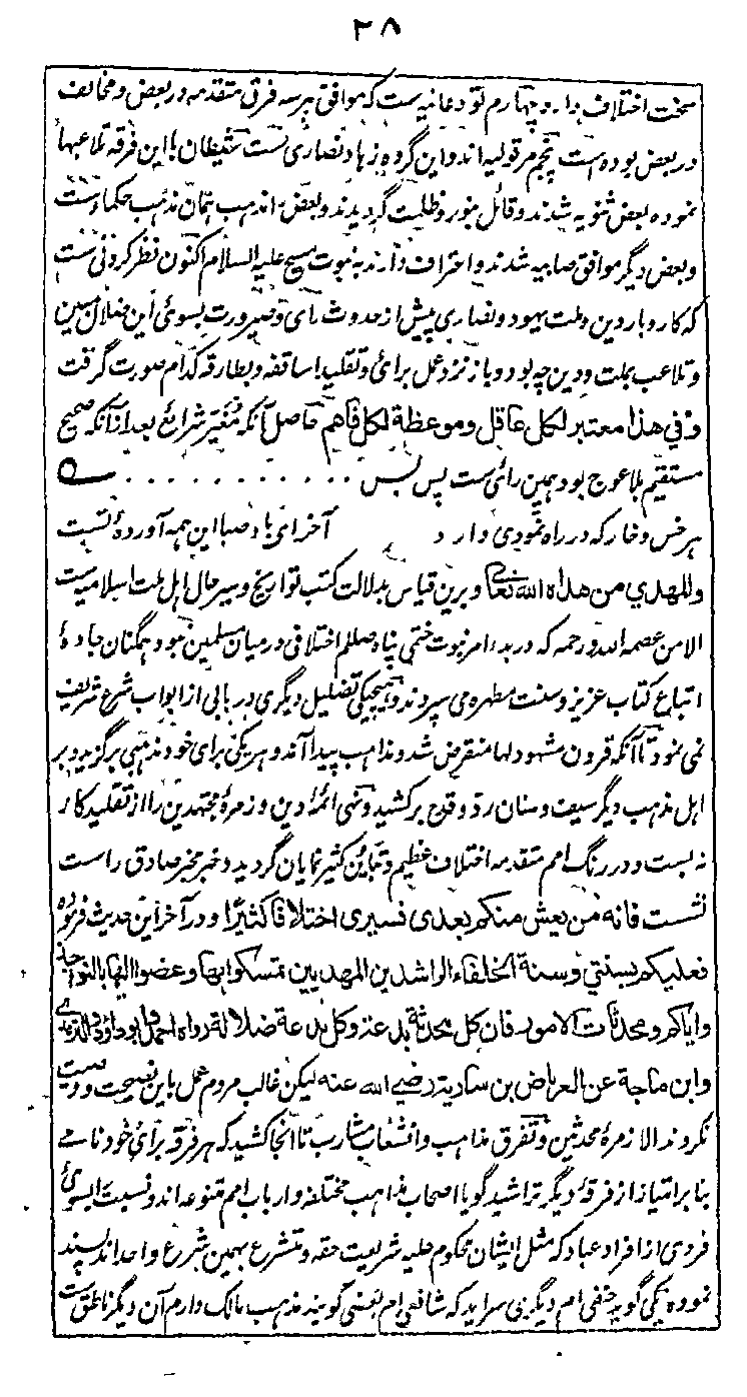 ۲۸
سخت اختلاف دارد و چهارم تودعانیه ست که موافق هرسه فرق متقدمه در بعض و مخالف
در بعض بوده است پنجم مرقولیه اند و این گروه زهاد نصاری ست شیطان با این فرقه تلاعبها
نموده بعض ثنویه شدند و قائل بنور و ظلمت گردیدند و بعض را مذهب همان مذهب حکماست
و بعض دیگر موافق صابیه شدند و اعتراف دارند به نبوت مسیح علیه السلام اکنون نظر کردنی ست
که کاروبار دین و ملت یهود و نصاری پیش از حدوث رای و صیرورت بسوئ این ضلال مبین
و تلاعب بملت و دین چه بود و باز نزد عمل برائ و تقلید اساقفه و بطارقه کدام صورت گرفت
و في هذا معتبر لكل عاقل وموعظة لكل فاهم حاصل آنکه مغیر شرائع بعد از آنکه صحیح
مستقیم بلا عوج بود همین رائ ست پس بس
هر خس و خار که در راه نمودی دارد آخر ای باد صبا این همه آوردهٔ تست
والمهدي من هداه الله تعالى و برین قیاس بدلالت کتب تواریخ و سیر حال اهل ملت اسلامیه ست
الا من عصمه الله و رحمه که در بدء امر نبوت ختمی پناه صللم اختلافی درمیان مسلمین نبود همگنان جادهٔ
اتباع کتاب عزیز و سنت مطهره می سپردند و هیچیکی تضلیل دیگری در بابی از ابواب شرع شریف
نمی نمود تا آنکه قرون مشهود لها منقرض شد و مذاهب پیدا آمد و هر یکی برای خود مذهبی برگزید و بر
اهل مذهب دیگر سیف و سنان رد و قدح برکشید و نهی ائمهٔ دین و زمرهٔ مجتهدین را از تقلید کار
نه بست و در رنگ امم متقدمه اختلاف عظیم و تباین کثیر نمایان گردید و خبر مخبر صادق راست
نشست فانه من يعش منكم بعدى فسيرى اختلافا كثيرا و در آخر این حدیث فرموده
فعليكم بسنتي وسنة الخلفاء الراشدين المهديين تمسكوا بها وعضوا عليها بالنواجذ
واياكم ومحدثات الامور فان كل محدثة بدعة وكل بدعة ضلالة رواه احمد وابو داؤد والترمذي
وابن ماجة عن العرباض بن سارية رضي الله عنه لیکن غالب مردم عمل باین نصیحت و وصیت
نکردند الا زمرهٔ محدثین و تفرق مذاهب و انشعاب مشارب تا آنجا کشید که هر فرقه برائ خود نامے
بنا بر امتیاز از فرقهٔ دیگر تراشید گویا اصحاب مذاهب مختلفه و ارباب امم متنوعه اند و نسبت بسوئ
فردی از افراد عباد که مثل ایشان محکوم علیه شریعت حقه و متشرع بهمین شرع واحد اند پسند
نموده یکی گوید حنفی ام دیگری سراید که شافعی ام بعضی گویند مذهب مالک دارم آن دیگر ناطق ست